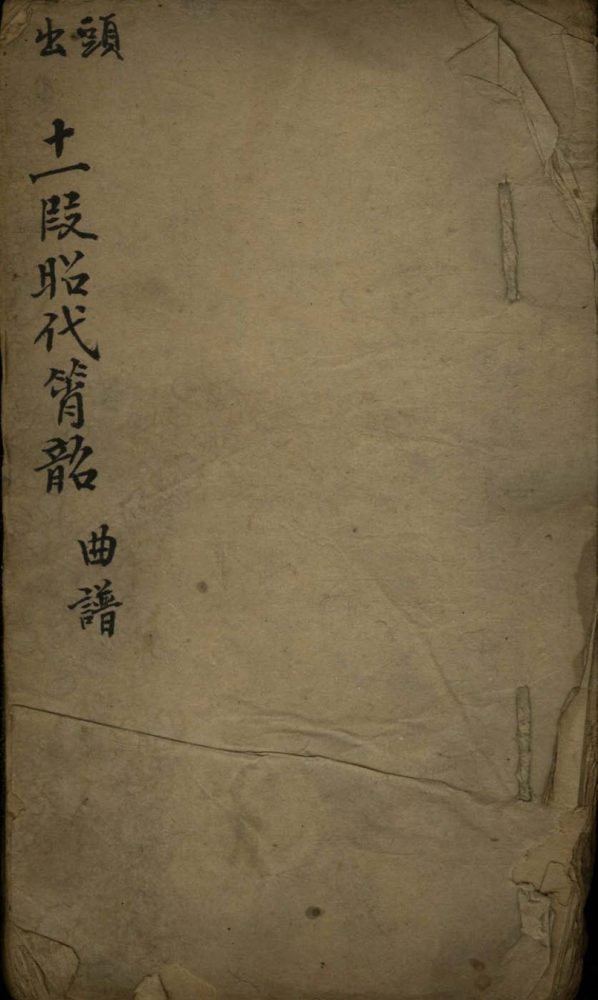 頭出
十一段昭代箫韶
曲譜